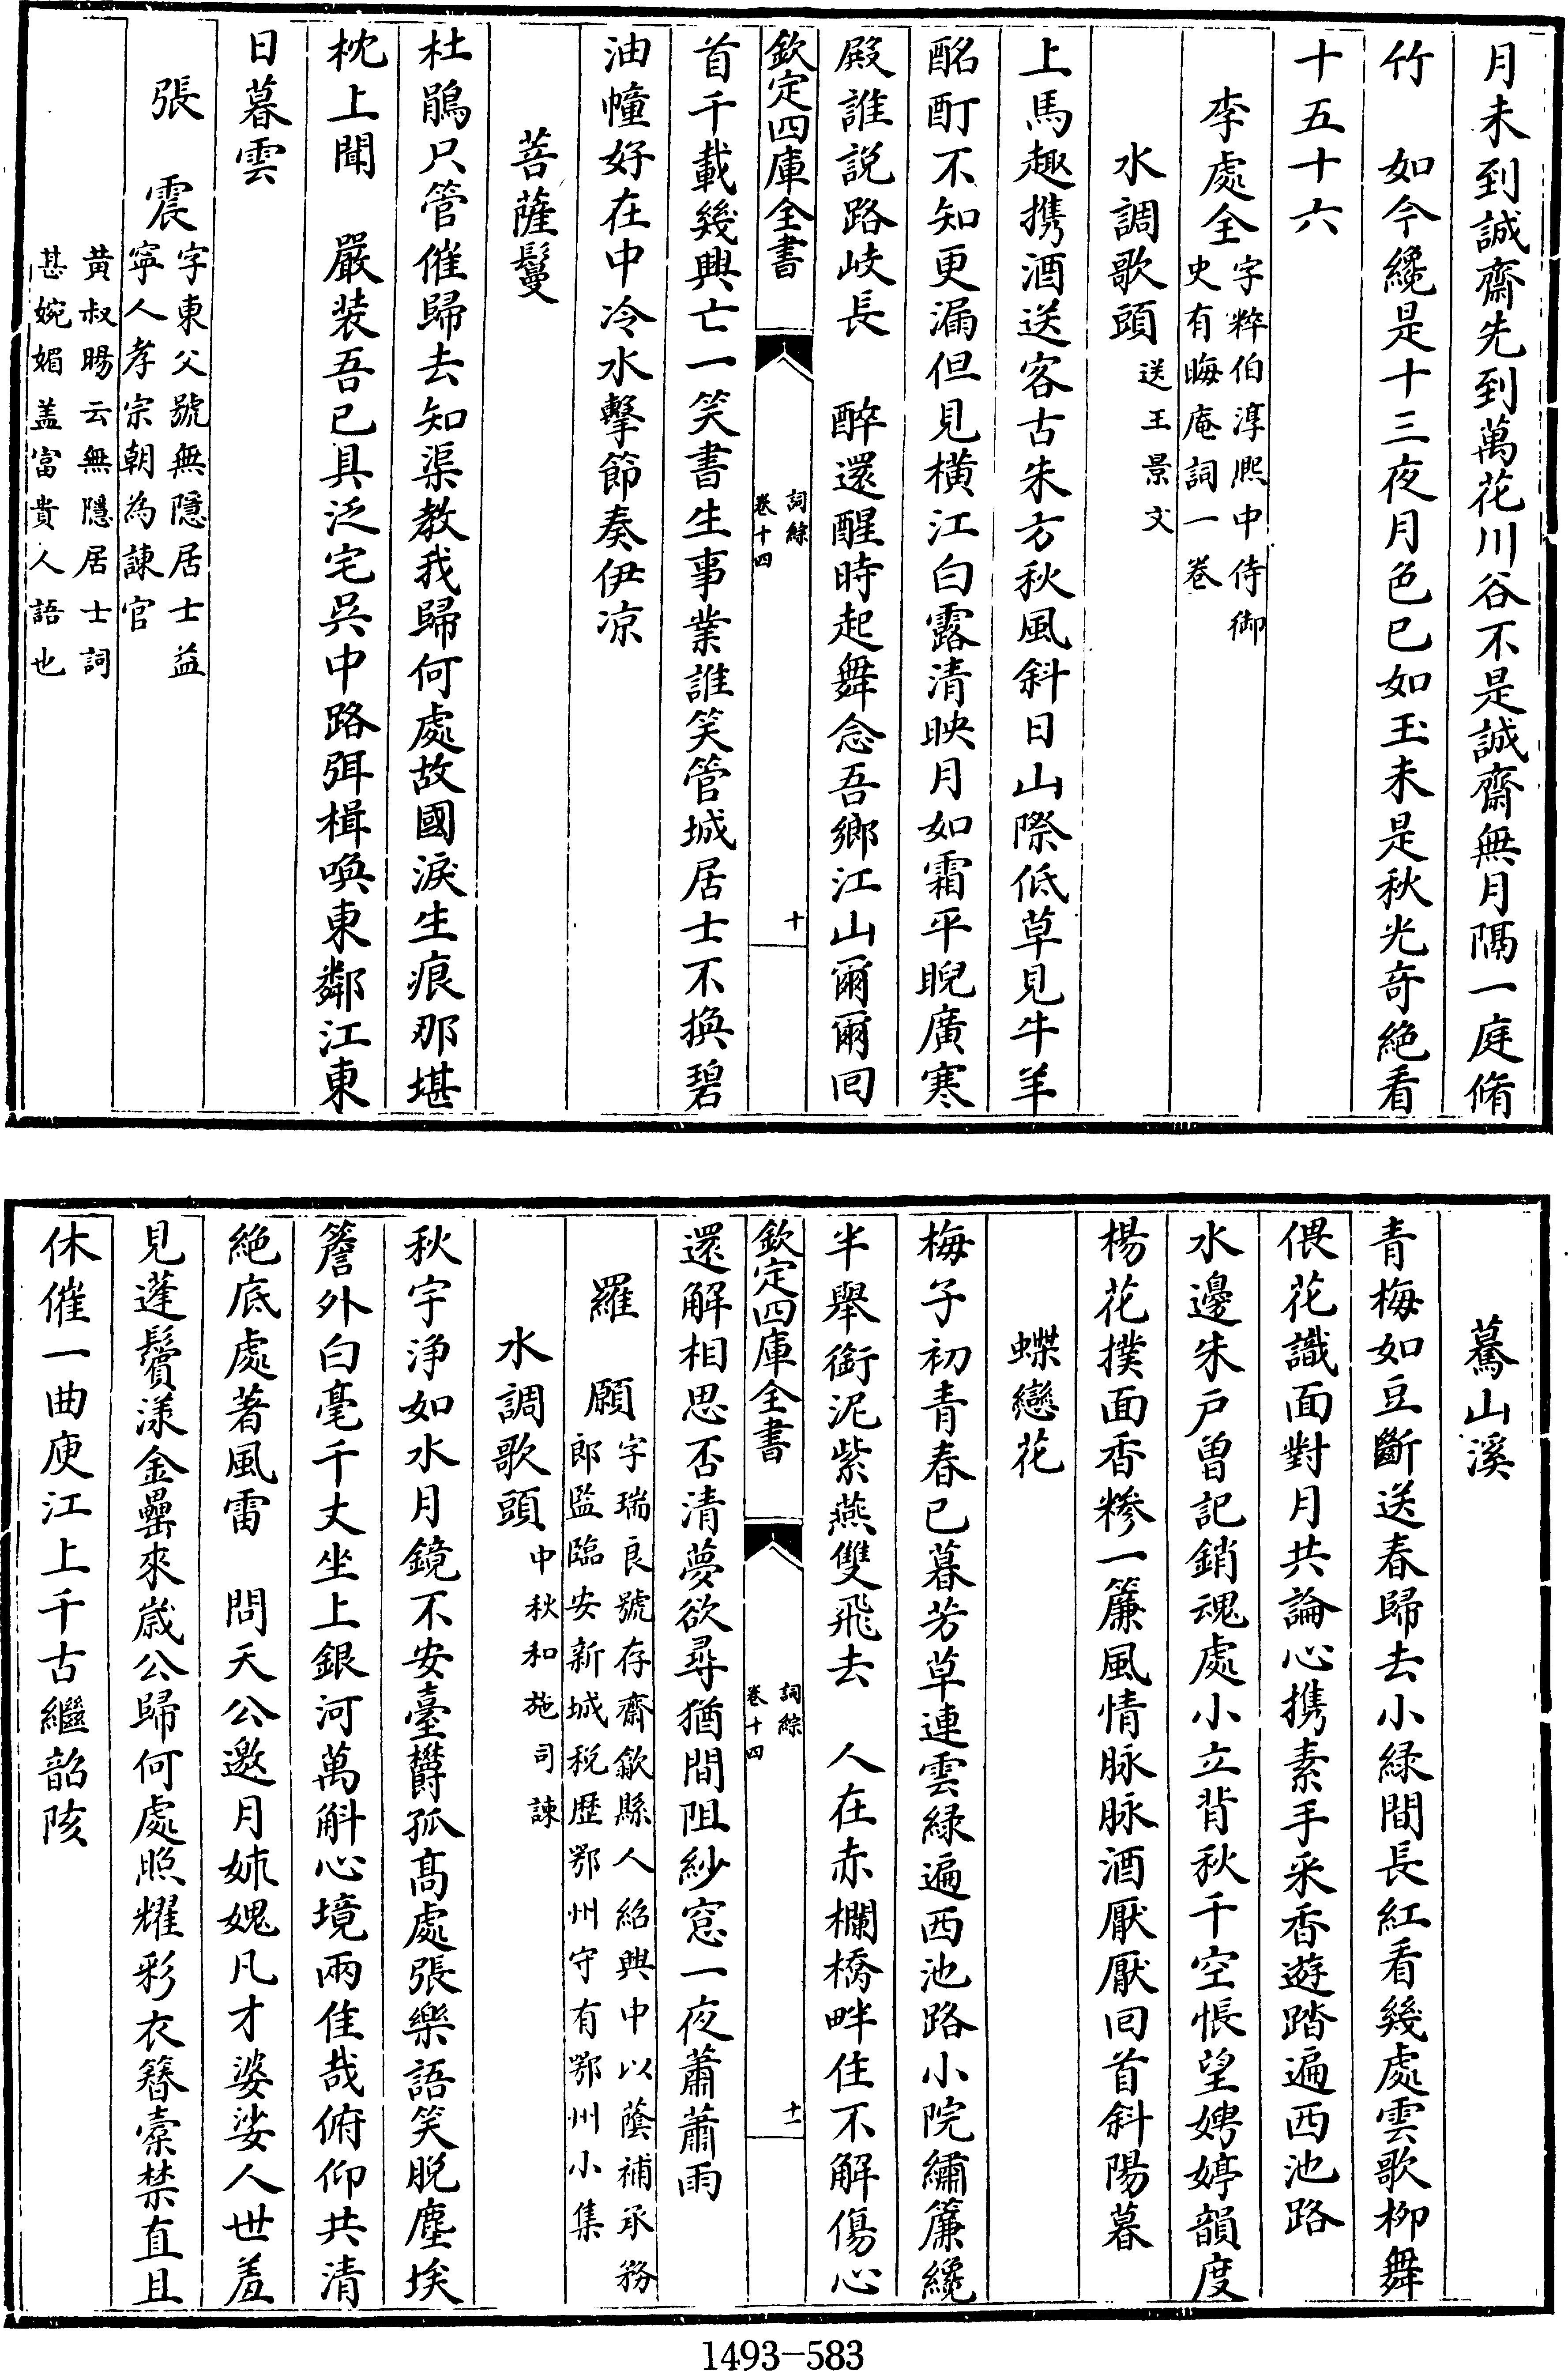 月未到誠齋先到萬花川谷不是誠齋無月隔一庭脩
竹　如今纔是十三夜月色已如玉未是秋光奇絶看
十五十六
李處全字粹伯淳熈中侍御
史有晦庵詞一卷
水調歌頭送王景文
上馬趣携酒送客古朱方秋風斜日山際低草見牛羊
酩酊不知更漏但見橫江白露清映月如霜平睨廣寒
殿誰説路岐長　醉還醒時起舞念吾鄉江山爾爾回
欽定四庫全書
詞綜
卷十四
十
首千載幾興亡一笑書生事業誰笑管城居士不換碧
油幢好在中冷水擊節奏伊凉
菩薩鬘
杜鵑只管催歸去知渠教我歸何處故國淚生痕那堪
枕上聞　嚴装吾已具泛宅吳中路弭楫喚東鄰江東
日暮雲
張　震字東父號無隱居士益
寧人孝宗朝為諫官
黄叔暘云無隱居士詞
甚婉媚盖富貴人語也
驀山溪
青梅如豆斷送春歸去小緑間長紅看幾處雲歌柳舞
偎花識面對月共論心携素手采香遊踏遍西池路
水邊朱戸曽記銷魂處小立背秋千空悵望娉婷韻度
楊花撲面香糝一簾風情脉脉酒厭厭回首斜陽暮
蝶戀花
梅子初青春已暮芳草連雲緑遍西池路小院繡簾纔
半舉銜泥紫燕雙飛去　人在赤欄橋畔住不解傷心
欽定四庫全書
詞綜
卷十四
十一
還解相思否清夢欲尋猶間阻紗窓一夜蕭蕭雨
羅　願字瑞良號存齋歙縣人紹興中以蔭補承務
郎監臨安新城税歴鄂州守有鄂州小集
水調歌頭中秋和施司諫
秋宇浄如水月鏡不安臺欝孤髙處張樂語笑脱塵埃
簷外白毫千丈坐上銀河萬斛心境兩佳哉俯仰共清
絶底處著風雷　問天公邀月姊媿凡才婆娑人世羞
見蓬鬢漾金罍來歳公歸何處照耀彩衣簪槖禁直且
休催一曲庾江上千古繼韶陔
1493-583